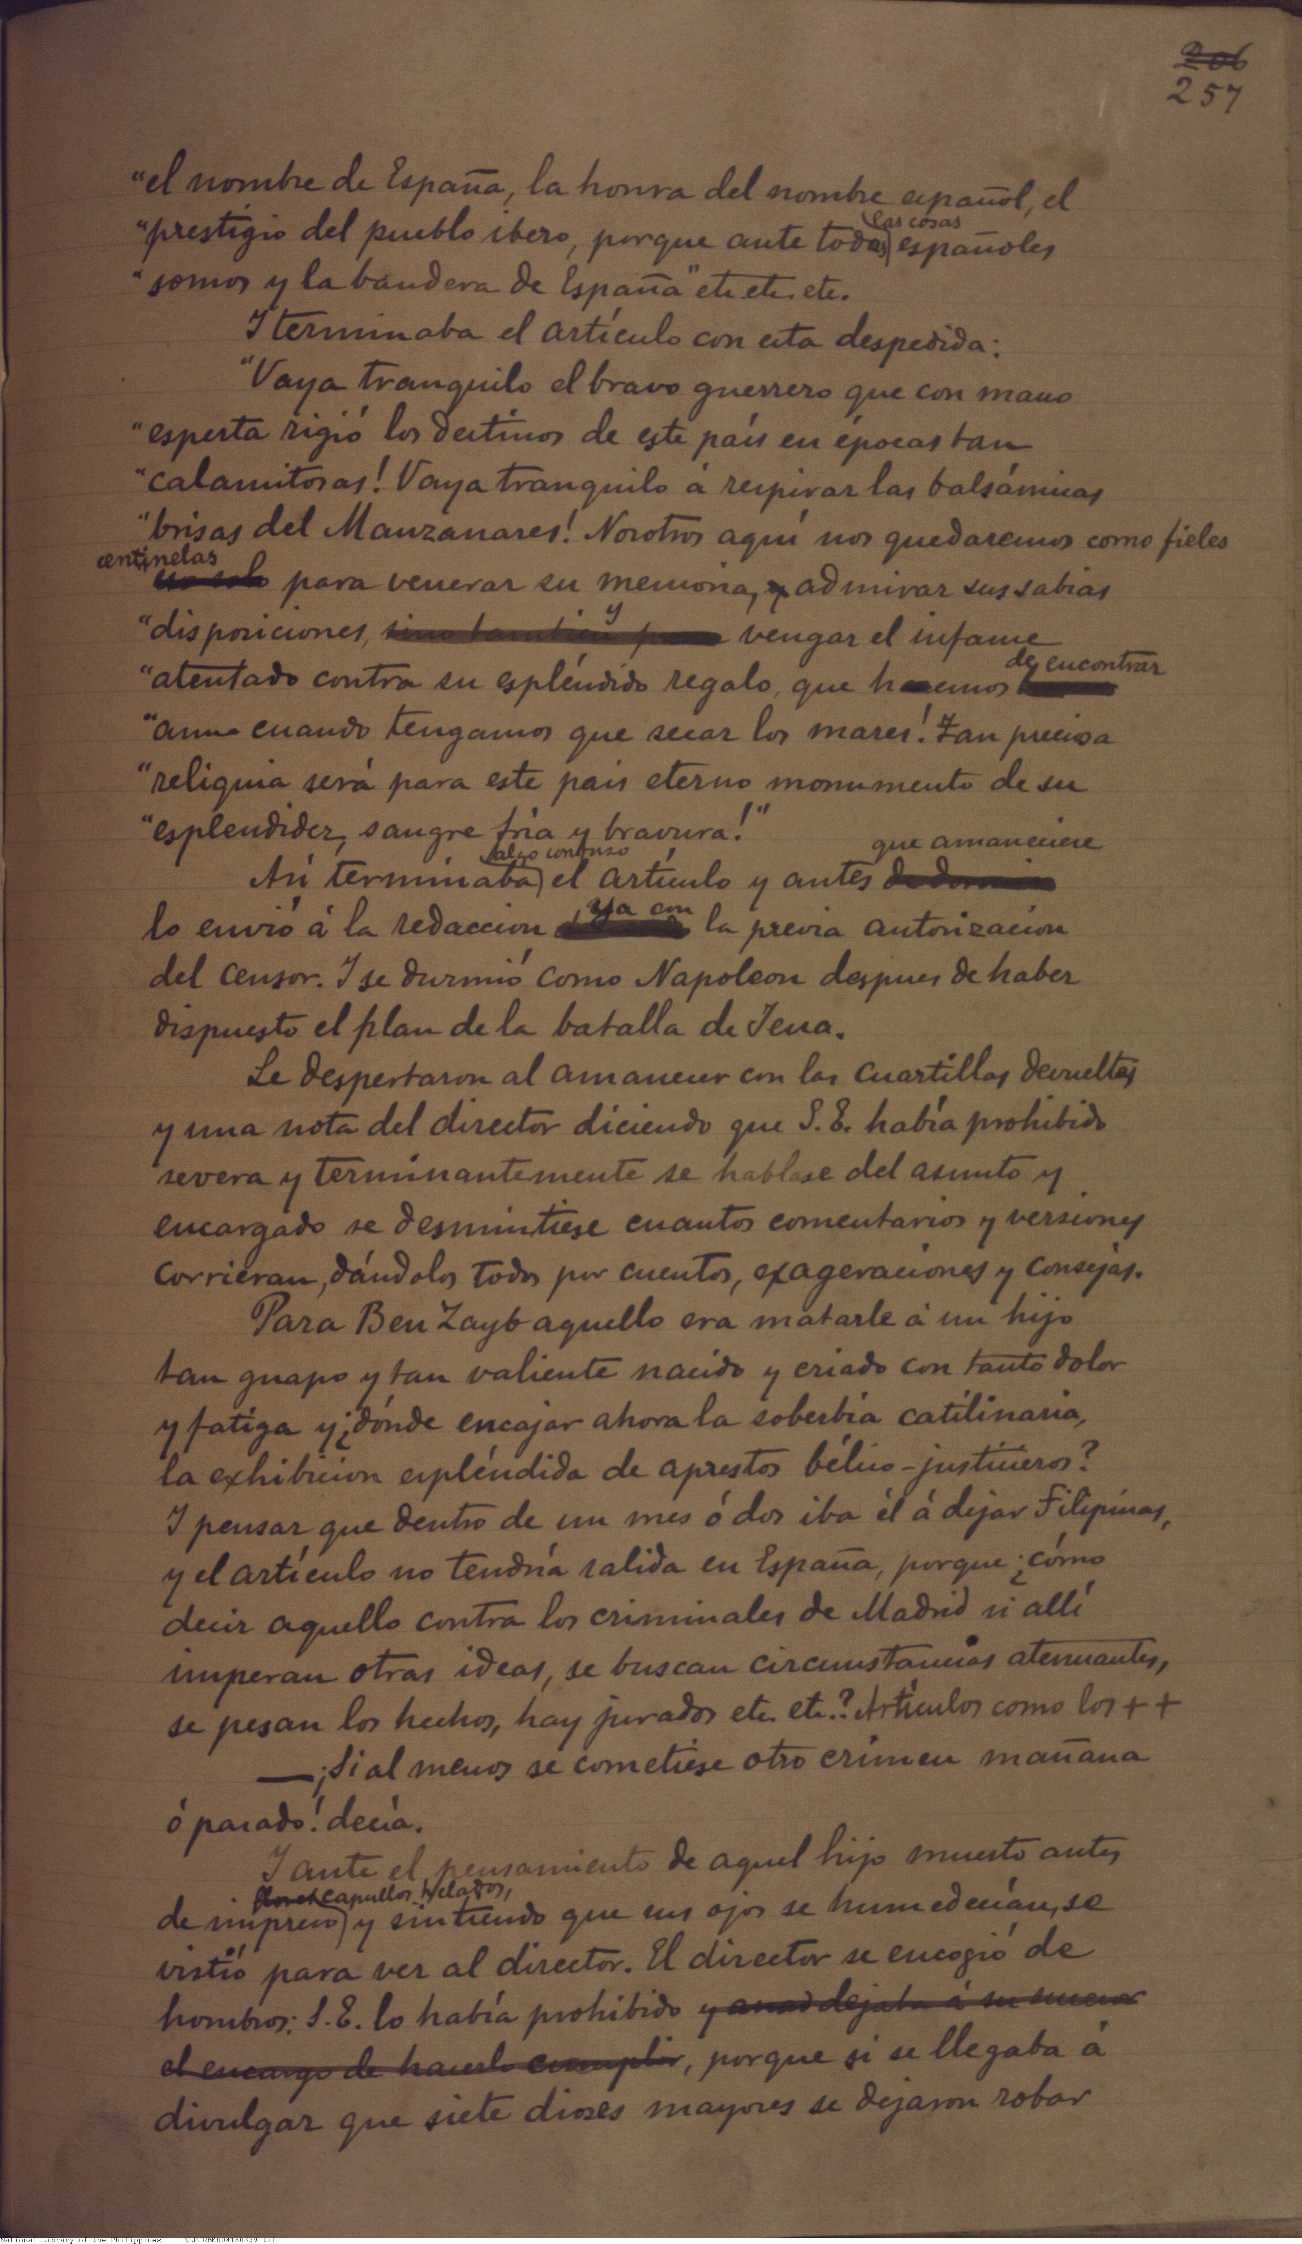 206
257
"el nombre de España, la honra del nombre español, el
las cosas
"prestigio del pueblo ibero, porque ante todas españoles
"somos y la bandera de España" etc. etc. etc.
I terminaba el artículo con esta despedida:
"Vaya tranquilo el bravo guerrero que con mano
"esperta rigió los destinos de este país en épocas tan
"calamitosas! Vaya tranquilo á respirar las balsámicas
"brisas del Manzanares! Nosotros aquí nos quedaremos como fieles
centinelas
no solo para venerar su memoria, y admirar sus sabias
y
"disposiciones, sino tambien para vengar el infame
de encontrar
"atentado contra su espléndido regalo, que hemos
"aun cuando tengamos que secar los mares! Tan preciosa
"reliquia será para este pais eterno monumento de su
"esplendidez, sangre fria y bravura!"
algo confuso que amaneciese
Así terminaba el artículo y antes de dormir
ya con
lo envió á la redaccion la previa autorizacion
del censor. I se durmió como Napoleon despues de haber
dispuesto el plan de la batalla de Jena.
Le despertaron al amanecer con las cuartillas devueltas
y una nota del director diciendo que S. E. había prohibido
severa y terminantemente se hablase del asunto y
encargado se desmintiese cuantos comentarios y versiones
corrieran, dándolos todos por cuentos, exageraciones y consejas.
Para Ben Zayb aquello era matarle á un hijo
tan guapo y tan valiente nacido y criado con tanto dolor
y fatiga y ¿dónde encajar ahora la soberbia catilinaria,
la exhibicion espléndida de aprestos bélico-justicieros?
I pensar que dentro de un mes ó dos iba él á dejar Filipinas,
y el artículo no tendría salida en España, porque ¿cómo
decir aquello contra los criminales de Madrid si allí
imperan otras ideas, se buscan circunstancias atenuantes,
se pesan los hechos, hay jurados etc. etc.? Artículos como los ++
—¡Si al menos se cometiese otro crimen mañana
ó pasado! decía.
I ante el pensamiento de aquel hijo muerto antes
capullos helados,
de impreso y sintiendo que sus ojos se humedecían, se
vistió para ver al director. El director se encogió de
hombros: S. E. lo había prohibido y dejaba á su
el encargo de hacerlo cumplir, porque si se llegaba á
divulgar que siete dioses mayores se dejaron robar